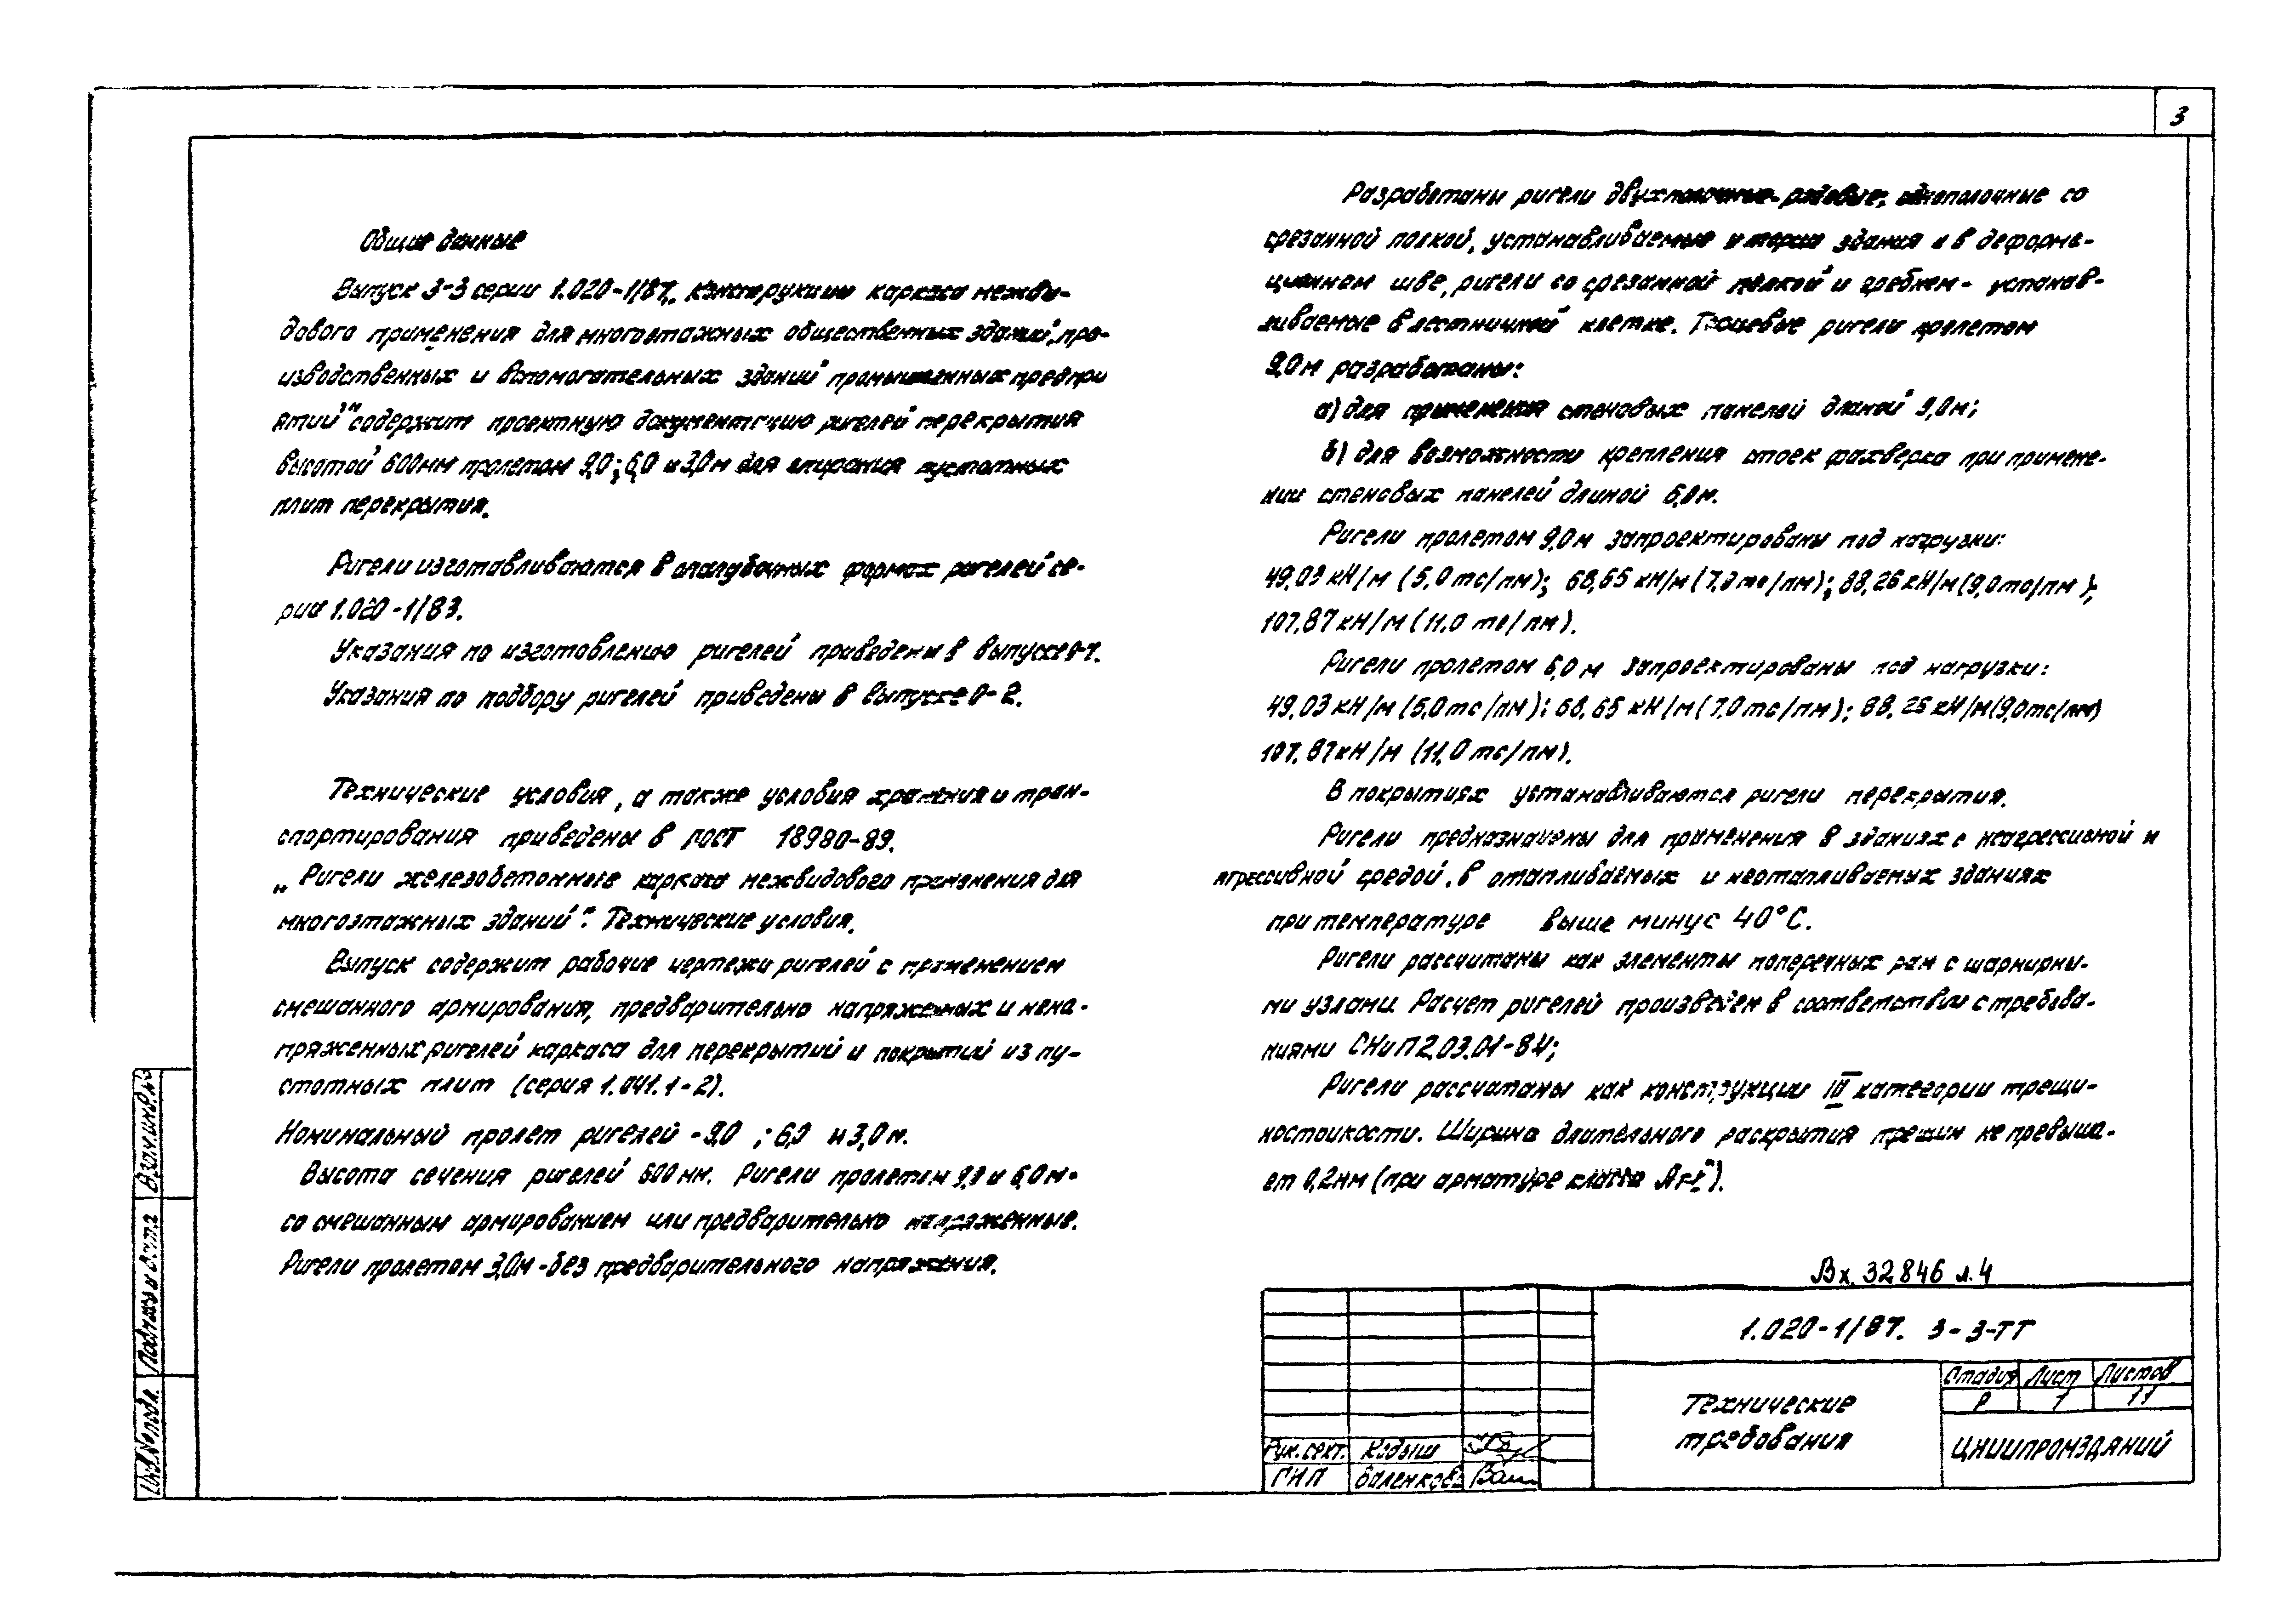 3
Общие данные
Выпуск 3-3 серии 1.020-1/87 „Конструкции каркаса межви-
дового применения для многоэтажных общественных зданий, про-
изводственных и вспомогательных зданий промышленных предпри
ятий" содержит проектную документацию ригелей перекрытия
высотой 600мм пролетом 9,0; 6,0 и 3,0м для опирания пустотных
плит перекрытия.
Ригели изготавливаются в опалубочных формах ригелей се-
рии 1.020-1/83.
Указания по изготовлению ригелей приведены в выпуске
Указания по подбору ригелей приведены в выпуске 0-2.
Технические условия, а также условия хранения и тран-
спортирования приведены в ГОСТ 18980-89.
„Ригели железобетонные каркаса межвидового применения для
многоэтажных зданий". Технические условия.
Выпуск содержит рабочие чертежи ригелей с применением
смешанного армирования, предварительно напряженных и нена-
пряженных ригелей каркаса для перекрытий и покрытий из пу-
стотных плит (серия 1.041.1-2).
Номинальный пролет ригелей - 9,0 ; 6,0 и 3,0 м.
Высота сечения ригелей 600 мм. Ригели пролетом 9,0 и 6,0м-
со смешанным армированием или предварительно напряженные.
Ригели пролетом 3,0м - без предварительного напряжения.
Разработаны ригели двухполочные- рядовые, однополочные со
срезанной полкой, устанавливаемые у торца здания и в деформа-
ционном шве, ригели со срезанной полкой и гребнем - устанав-
ливаемые в лестничной клетке. Торцевые ригели пролетом
9,0м разработаны:
а) для применения стеновых панелей длиной 9,0м;
б) для возможности крепления стоек фахверка при примене-
нии стеновых панелей длиной 6,0м.
Ригели пролетом 9,0м запроектированы под нагрузки:
49,03 кН/м (5,0 тс/пм); 68,65 кН/м (7,0 тс/пм); 88,26 кН/м (9,0тс/пм);
107,87 кН/м (11,0 тс/пм).
Ригели пролетом 6,0 м запроектированы под нагрузки:
49,03 кН/м (5,0тс/пм); 68,65 кН/м (7,0тс/пм); 88,26 кН/м(9,0тс/пм)
107,87кН/м (11,0 тс/пм).
В покрытиях устанавливаются ригели перекрытия.
Ригели предназначены для применения в зданиях с неагрессивной и
агрессивной средой, в отапливаемых и неотапливаемых зданиях
при температуре выше минус 40°С.
Ригели рассчитаны как элементы поперечных рам с шарнирны-
ми узлами. Расчет ригелей произведен в соответствии с требова-
ниями СНиП 2.03.01-84;
Ригели рассчитаны как конструкции III категории трещи-
ностойкости. Ширина длительного раскрытия трещин не превыша-
ет 0,2мм (при арматуре класса
Вх. 32846 л.4
1.020-1/87. 3-3-ТТ
Технические
требования
Стадия Лист Листов
Р 1 11
ЦНИИПРОМЗДАНИЙ
Рук.сект. Кодыш
ГИП
Взам.инв.№
Подпись и дата
Инв.№ подл.